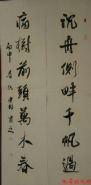 沉舟側畔千帆過
病樹前頭萬木春
丙申